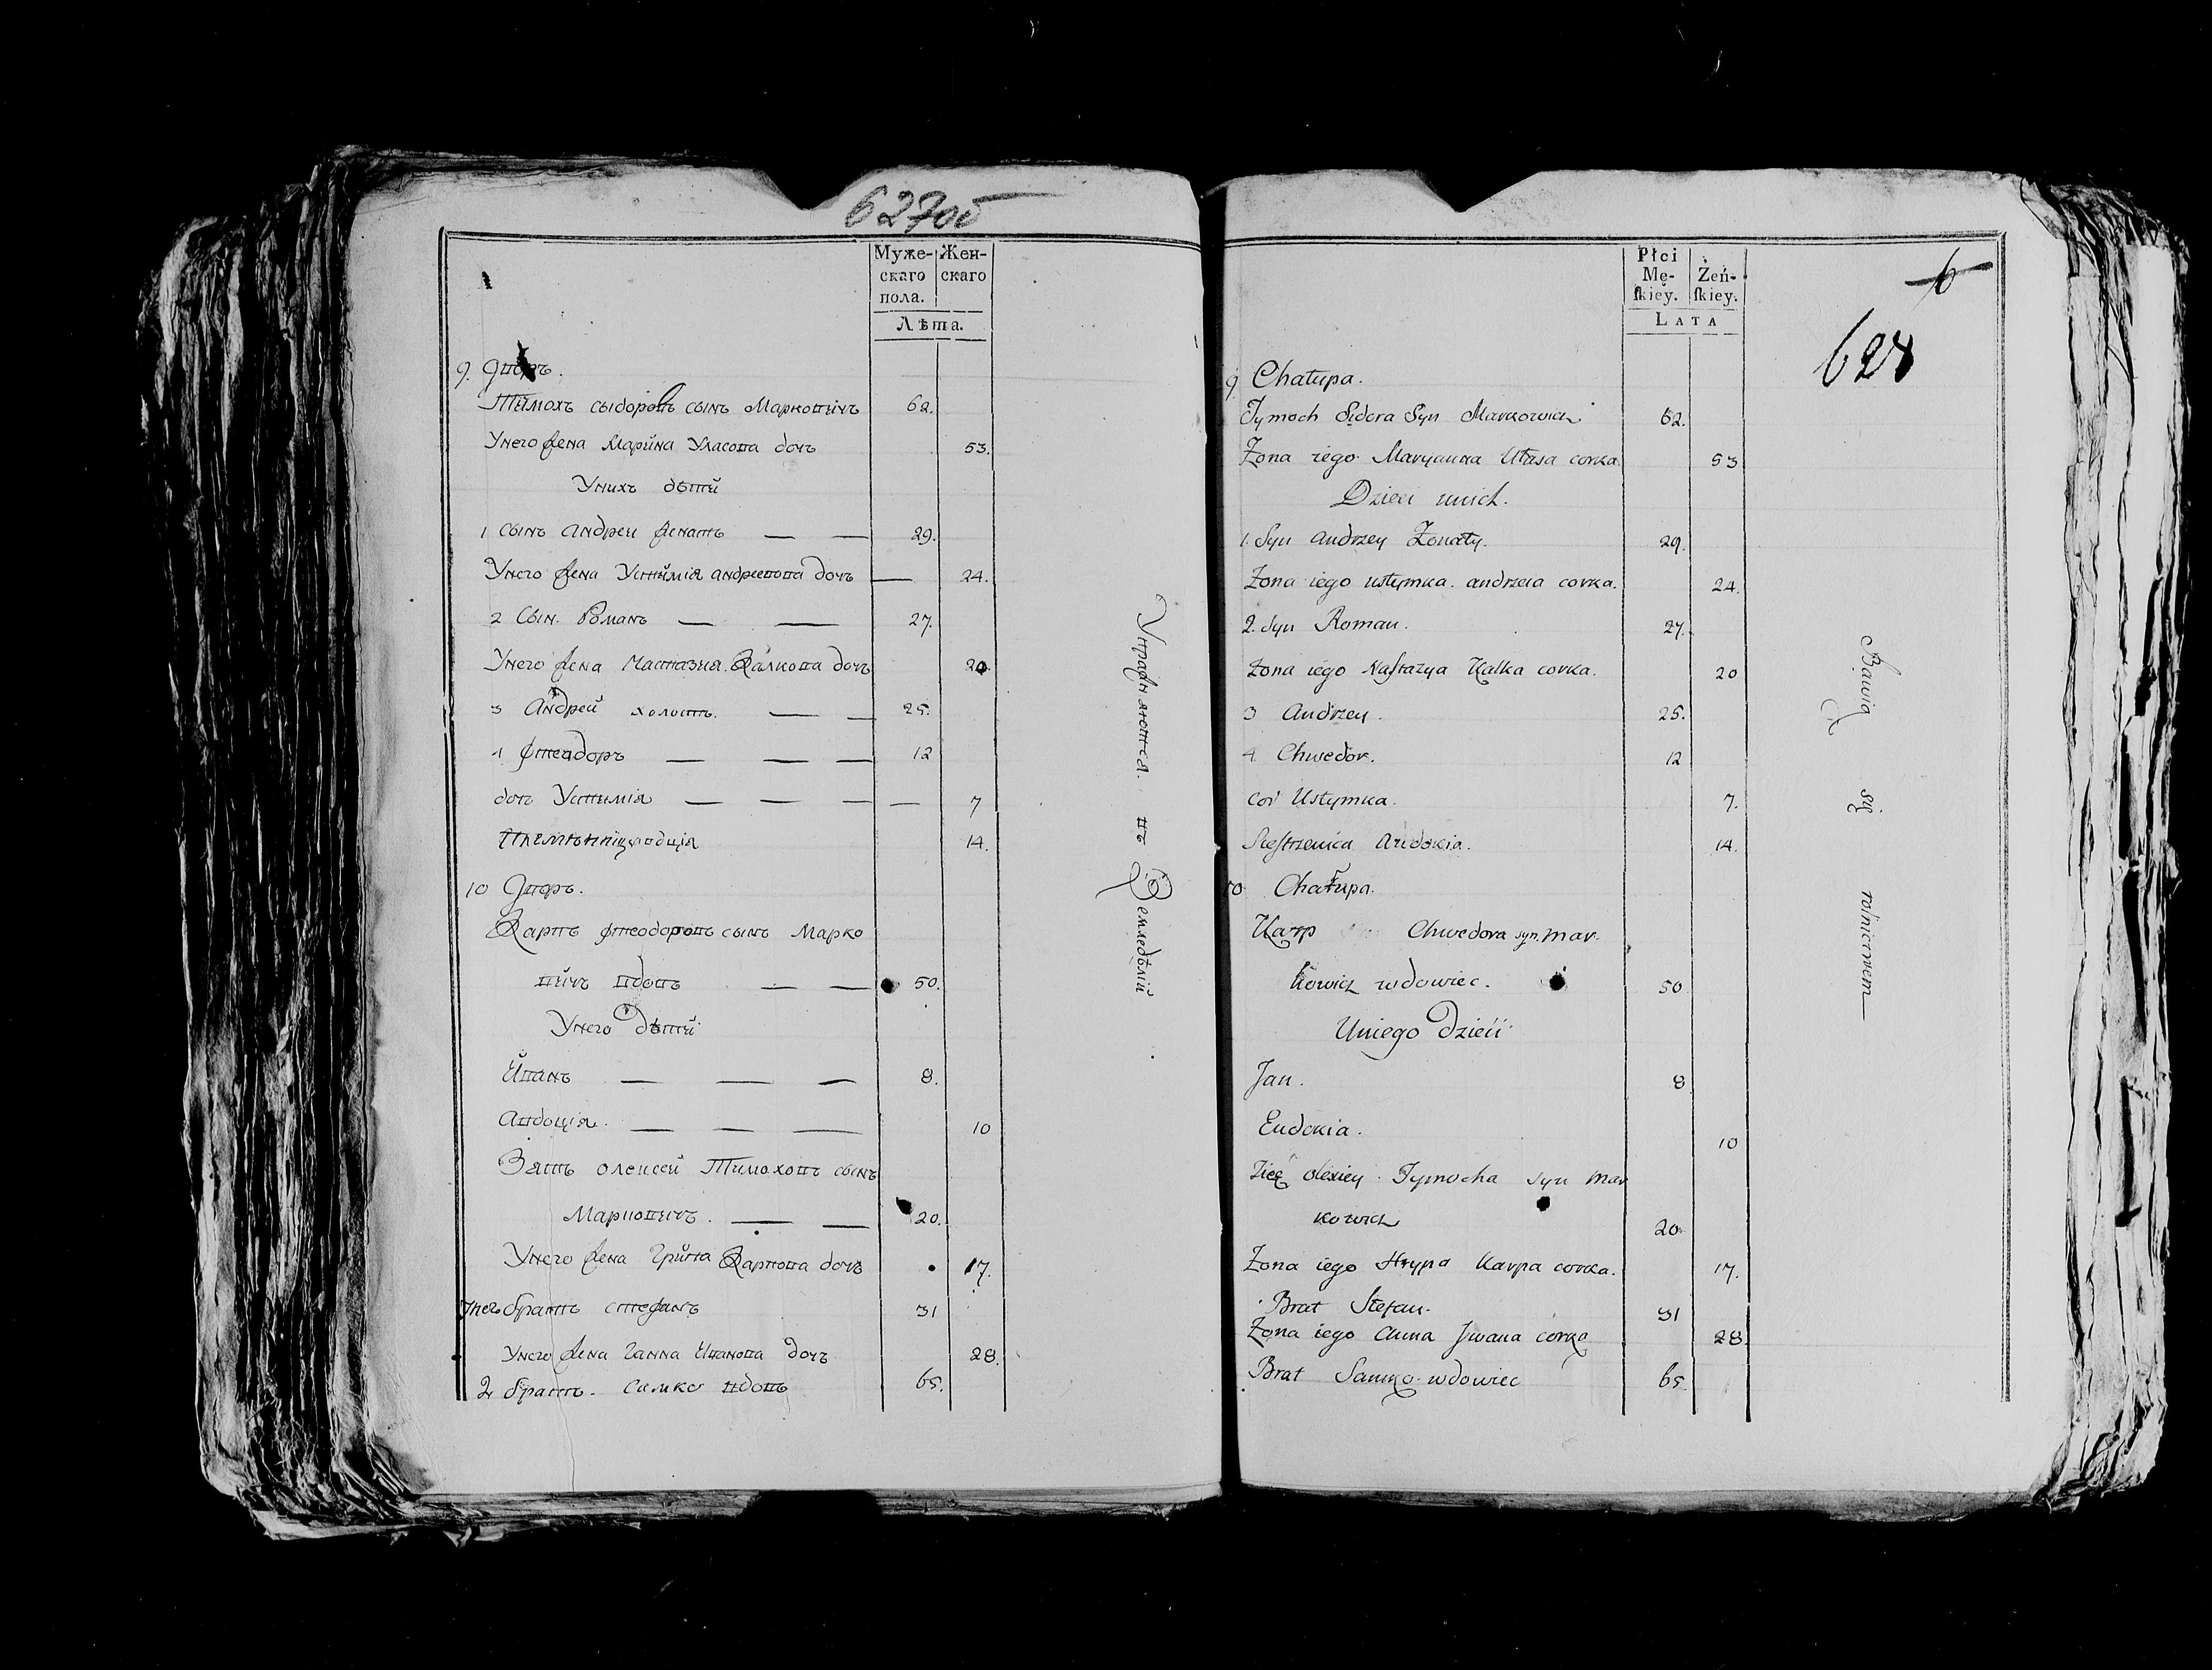 627об
Муже-
скаго
пола.
Жен-
скаго
Лѣта.
9. Дворъ.
Тымохъ сыдоровъ сынъ Марковичъ 62.
Унего жена Марына Уласова дочъ 53.
Унихъ дѣтей
1 сынъ андреи женатъ — — 29.
Унего жена Устымія андреевова дочъ — 24.
2 Сын. Романъ — — 27.
Унего жена Настазия. Калкова дочъ 20
3 Андрей холостъ. — — 25.
4 Фтеадоръ — — — 12
доч Устимія — — — — 7
14.
10 Дворъ.
Карпъ фтеодоровъ сынъ Марко
вичъ вдовъ — — 50.
Унего дѣтей
Иванъ — — — 8.
Авдоція. — — — 10
Зять олексей Тимоховъ сынъ
Марковичъ. — — 20.
Унего жена Грипа Карпова дочъ 17.
Унего братъ стефанъ 31
Унего жена Ганна Иванова дочъ 28.
2 братъ. самко вдовъ 65.
Упражняются. въ Земледѣлій
Płci
Mę-
ſkiey.
Żeń-
ſkiey.
Lata
6
628
9 Chałupa.
Tymoch Sidora Syn Markowicz 62.
Zona iego Maryanna Ułasa corka 53
Dzieci unich.
1. Syn andrzey Zonaty. 29.
Zona iego ustymka. andrzeia corka. 24.
2. Syn Roman. 27.
Zona iego Naſtazya Kalka corka. 20
3 Andrzey. 25.
4 Chwedor. 12
Cor Ustymka. 7.
Sieſtrzenica Awdokia. 14.
10 Chałupa.
Karp Chwedora syn. Mar.
kowicz wdowiec. 50
Uniego dzieci
Jan. 8
Eudokia. 10
Zięć olexiey Tymocha syn Mar
kowicz 20.
Zona iego Hrypa Karpa corka. 17.
Brat Stefan. 31
Zona iego Anna Jwana córka 28.
Brat Samko wdowiec 65.
Bawią się rolnictwem